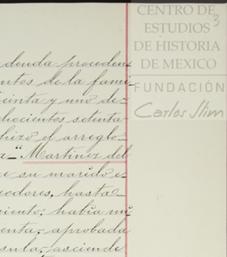 CENTRO DE
ESTUDIOS
DE HISTORIA
DE MEXICO
FUNDACIÓN
Carlos Slim
3
deuda proceden
ntos de la fami
cinta y uno de
checientos setenta
hizo el arreglo
a "Martinez del
e su marido e
cedores, hasta
iento; habia
enta, aprobada
sula, asciende